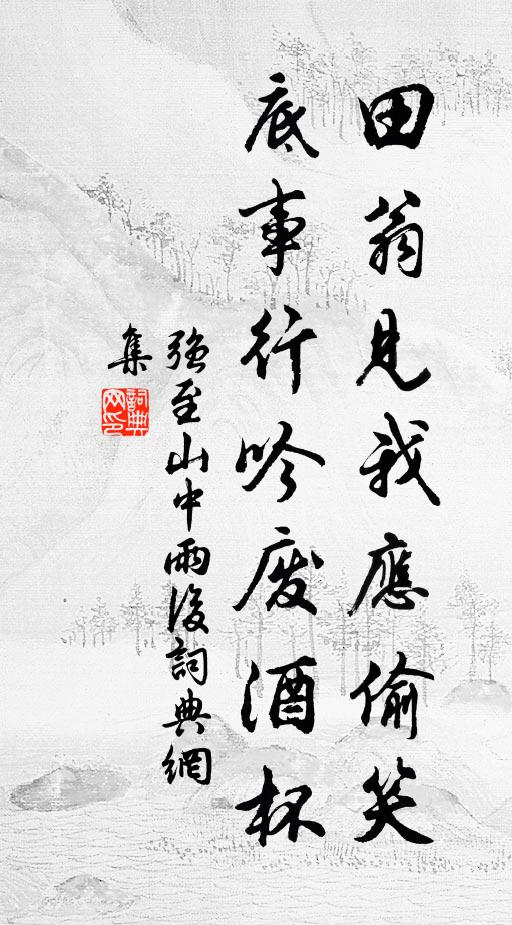 田翁見我應偷笑
底事行吟废酒杯
强至山中雨後詞典網
集
詞典
网印